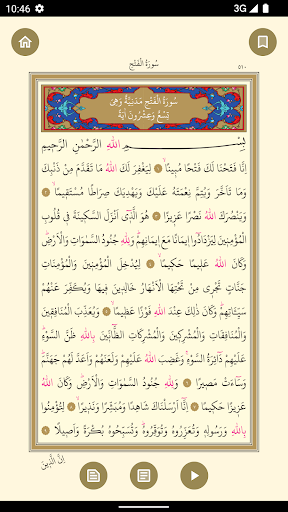 10:46
3G
سُورَةُ الْفَتْحِ
٥١٠
سُورَةُ الْفَتْحِ مَدَنِيَّةٌ وَهِيَ
تِسْعٌ وَعِشْرُونَ آيَةً
بِسْــــمِ اللّٰهِ الرَّحْمٰنِ الرَّحِيمِ
اِنَّا فَتَحْنَا لَكَ فَتْحًا مُبِينًاۙ ١ لِيَغْفِرَ لَكَ اللّٰهُ مَا تَقَدَّمَ مِنْ ذَنْبِكَ
وَمَا تَاَخَّرَ وَيُتِمَّ نِعْمَتَهُ عَلَيْكَ وَيَهْدِيَكَ صِرَاطًا مُسْتَقِيمًاۙ ٢
وَيَنْصُرَكَ اللّٰهُ نَصْرًا عَزِيزًا ٣ هُوَ الَّذِى اَنْزَلَ السَّكِينَةَ فِى قُلُوبِ
الْمُؤْمِنِينَ لِيَزْدَادُوا اِيمَانًا مَعَ اِيمَانِهِمْۜ وَلِلّٰهِ جُنُودُ السَّمٰوَاتِ وَالْاَرْضِۜ
وَكَانَ اللّٰهُ عَلِيمًا حَكِيمًاۙ ٤ لِيُدْخِلَ الْمُؤْمِنِينَ وَالْمُؤْمِنَاتِ
جَنَّاتٍ تَجْرِى مِنْ تَحْتِهَا الْاَنْهَارُ خَالِدِينَ فِيهَا وَيُكَفِّرَ عَنْهُمْ
سَيِّـَٔاتِهِمْۜ وَكَانَ ذٰلِكَ عِنْدَ اللّٰهِ فَوْزًا عَظِيمًاۙ ٥ وَيُعَذِّبَ الْمُنَافِقِينَ
وَالْمُنَافِقَاتِ وَالْمُشْرِكِينَ وَالْمُشْرِكَاتِ الظَّانِّينَ بِاللّٰهِ ظَنَّ السَّوْءِۜ
عَلَيْهِمْ دَائِرَةُ السَّوْءِۚ وَغَضِبَ اللّٰهُ عَلَيْهِمْ وَلَعَنَهُمْ وَاَعَدَّ لَهُمْ جَهَنَّمَۜ
وَسَاءَتْ مَصِيرًا ٦ وَلِلّٰهِ جُنُودُ السَّمٰوَاتِ وَالْاَرْضِۜ وَكَانَ اللّٰهُ
عَزِيزًا حَكِيمًا ٧ اِنَّا اَرْسَلْنَاكَ شَاهِدًا وَمُبَشِّرًا وَنَذِيرًاۙ ٨ لِتُؤْمِنُوا
بِاللّٰهِ وَرَسُولِهِ وَتُعَزِّرُوهُ وَتُوَقِّرُوهُۜ وَتُسَبِّحُوهُ بُكْرَةً وَاَصِيلًا ٩
اِنَّ الَّذِينَ